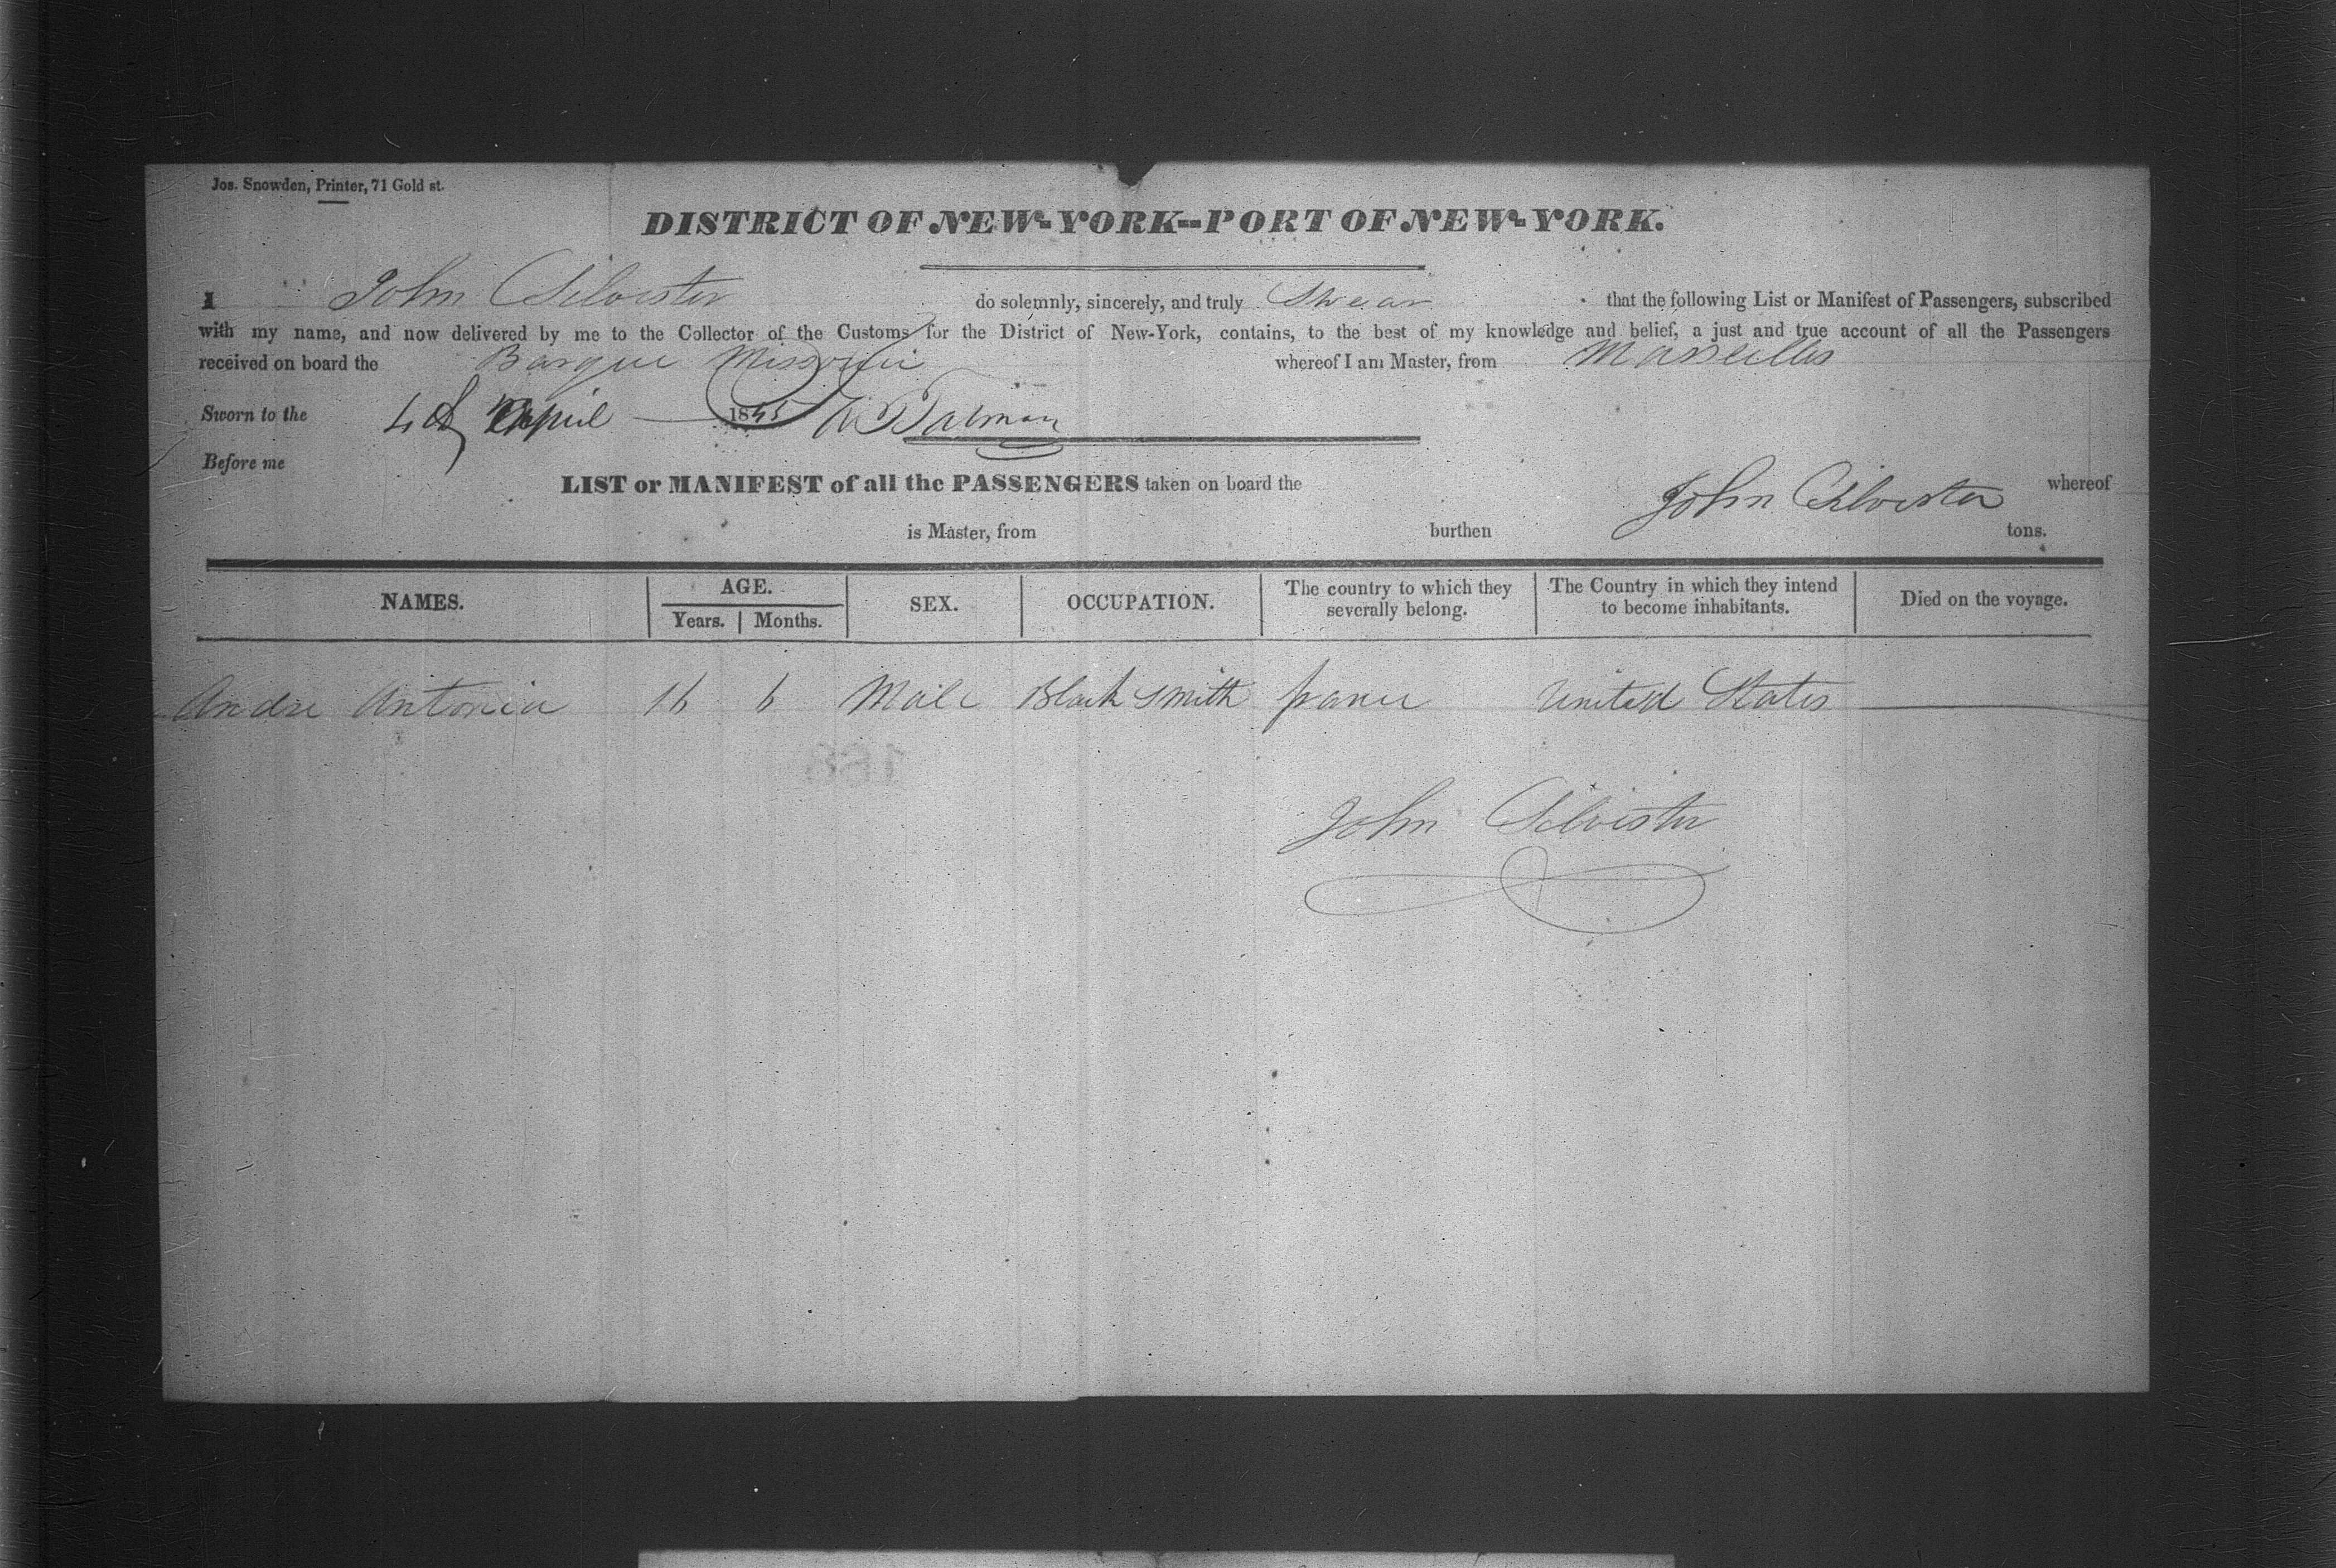 Jos. Snowden, Printer, 71 Gold st.
DISTRICT OF NEW-YORK--PORT OF NEW-YORK.
I John Silvester do solemnly, sincerely, and truly Swear that the following List or Manifest of Passengers, subscribed
with my name, and now delivered by me to the Collector of the Customs for the District of New-York, contains, to the best of my knowledge and belief, a just and true account of all the Passengers
received on board the Barque Missouri whereof I am Master, from Marseilles
Sworn to the 4 April 1845
Before me
John Silvester
LIST or MANIFEST of all the PASSENGERS taken on board the whereof
is Master, from burthen tons.
NAMES. AGE. Years. Months. SEX. OCCUPATION. The country to which they severally belong. The Country in which they intend to become inhabitants. Died on the voyage.
Andre Antonia 16 6 Male Black smith france United States
168
John Silvester